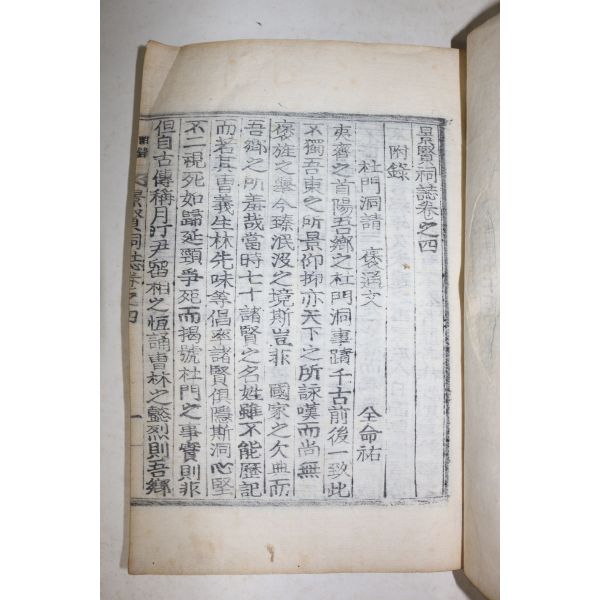 景賢祠誌卷之四
附錄
杜門洞請 褒通文 全命祐
夷齊之首陽吾鄉之杜門洞事蹟千古前後一致此
不獨吾東之所景仰抑亦天下之所詠嘆而尚無
褒旌之擧今臻泯沒之境斯豈非 國家之欠典而
吾鄉之所羞哉當時七十諸賢之名姓雖不能歷記
而若其曺義生林先味等倡率諸賢俱隱斯洞心堅
不二視死如歸延頸爭死而揭號杜門之事實則非
附錄 景賢祠誌卷之四 一
但自古傳稱月汀尹留相之恆誦曺林之懿烈則吾鄉